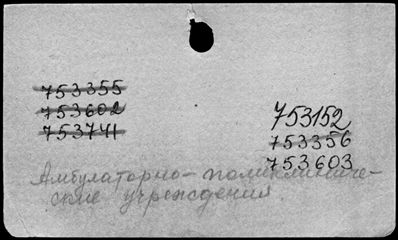 753355
753602
753741
753152
753356
753603
Амбулаторно-поликлиниче-
ские учреждения